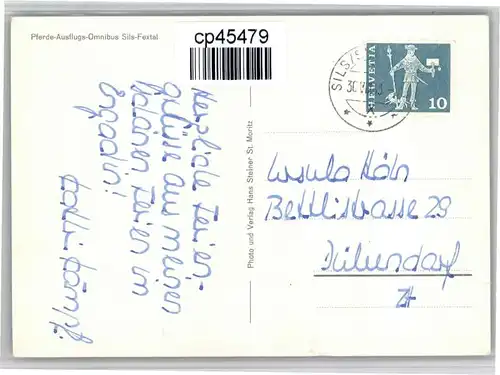 Pferde-Ausflugs-Omnibus Sils-Fextal
cp45479
HELVETIA
10
SILS/S
30
Herzliche Ferien-
grüsse aus meinen
Ferien im
Engadin!
Photo und Verlag Hans Steiner St. Moritz
Ursula
Bettlistrasse 29
Dübendorf
ZH